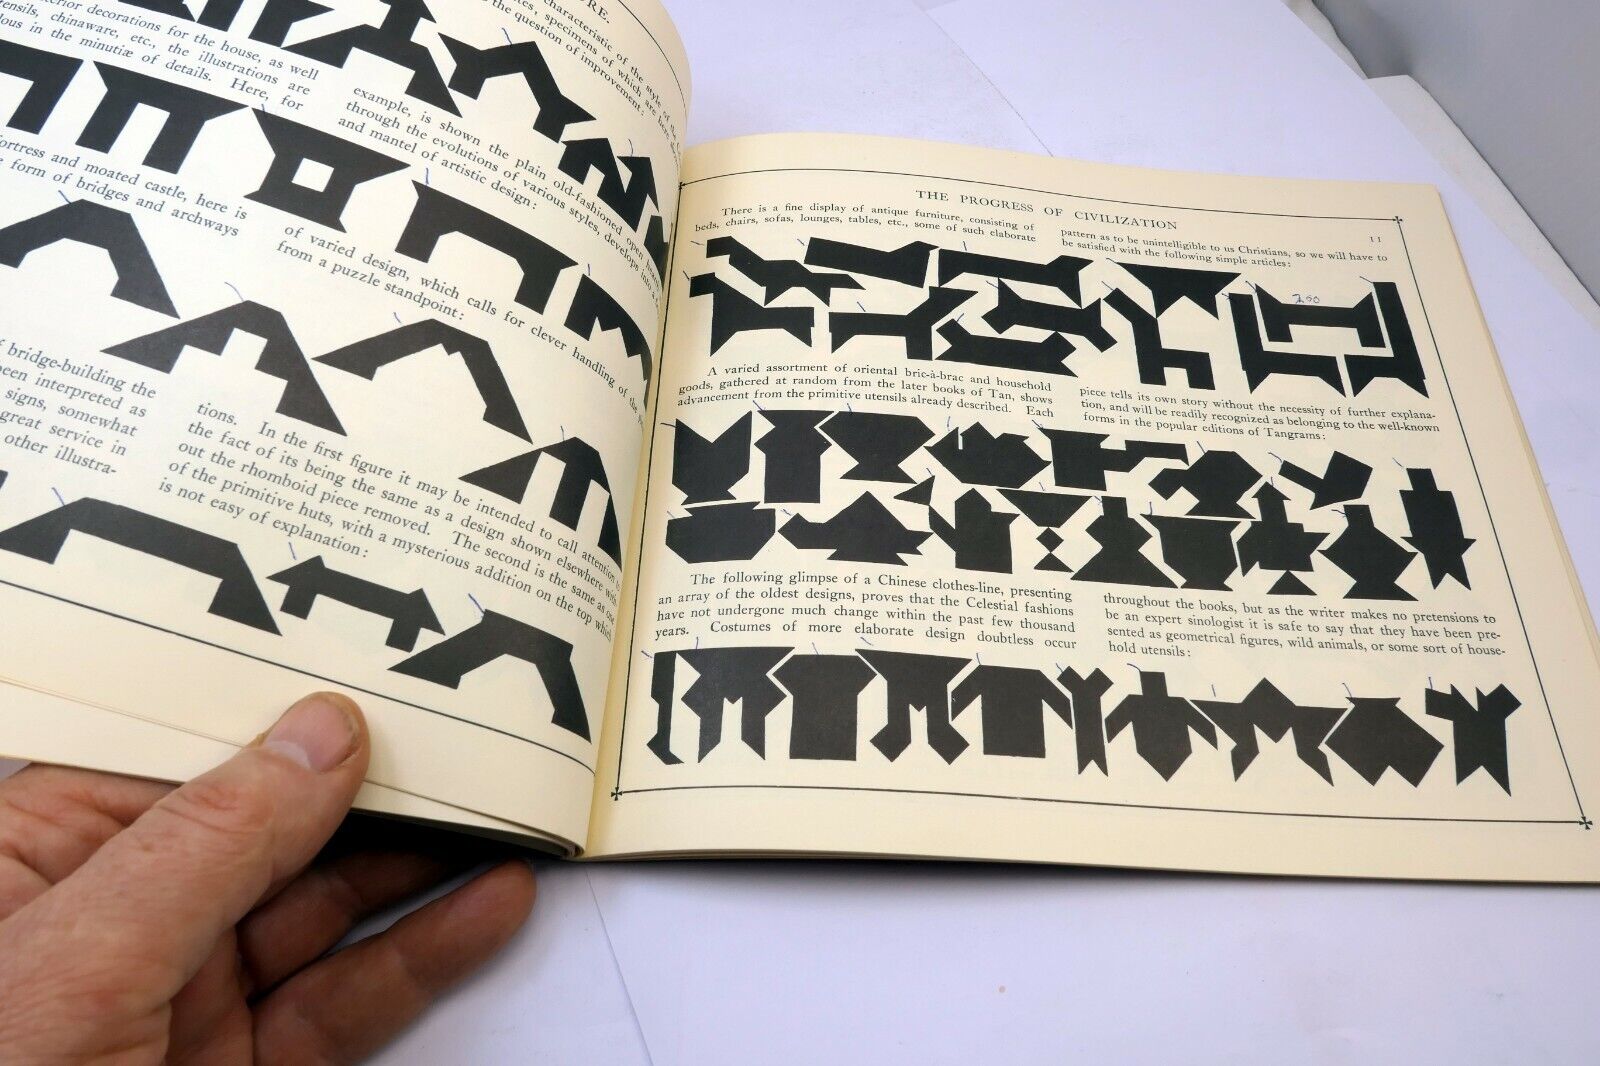 URE.
characteristic of the style of the
specimens of which are here
the question of improvement:
erior decorations for the house, as well
tensils, chinaware, etc., the illustrations are
lous in the minutiæ of details. Here, for
example, is shown the plain old-fashioned open hearth
through the evolutions of various styles, develops into a
and mantel of artistic design:
fortress and moated castle, here is
e form of bridges and archways
of varied design, which calls for clever handling of the
from a puzzle standpoint:
f bridge-building the
been interpreted as
signs, somewhat
great service in
other illustra-
tions. In the first figure it may be intended to call attention to
the fact of its being the same as a design shown elsewhere with-
out the rhomboid piece removed. The second is the same as one
of the primitive huts, with a mysterious addition on the top which
is not easy of explanation:
THE PROGRESS OF CIVILIZATION
11
There is a fine display of antique furniture, consisting of
beds, chairs, sofas, lounges, tables, etc., some of such elaborate
pattern as to be unintelligible to us Christians, so we will have to
be satisfied with the following simple articles:
A varied assortment of oriental bric-à-brac and household
goods, gathered at random from the later books of Tan, shows
advancement from the primitive utensils already described. Each
piece tells its own story without the necessity of further explana-
tion, and will be readily recognized as belonging to the well-known
forms in the popular editions of Tangrams:
The following glimpse of a Chinese clothes-line, presenting
an array of the oldest designs, proves that the Celestial fashions
have not undergone much change within the past few thousand
years. Costumes of more elaborate design doubtless occur
throughout the books, but as the writer makes no pretensions to
be an expert sinologist it is safe to say that they have been pre-
sented as geometrical figures, wild animals, or some sort of house-
hold utensils: